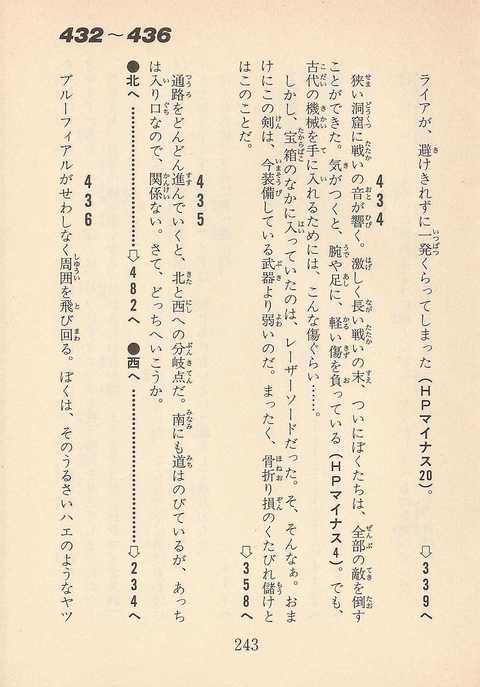 432～436
ライアが、避けきれずに一発くらってしまった（HPマイナス20）。
⇨339へ
434
狭い洞窟に戦いの音が響く。激しく長い戦いの末、ついにぼくたちは、全部の敵を倒す
ことができた。気がつくと、腕や足に、軽い傷を負っている（HPマイナス4）。でも、
古代の機械を手に入れるためには、こんな傷ぐらい……。
しかし、宝箱のなかに入っていたのは、レーザーソードだった。そ、そんなぁ。おま
けにこの剣は、今装備している武器より弱いのだ。まったく、骨折り損のくたびれ儲けと
はこのことだ。
⇨358へ
435
通路をどんどん進んでいくと、北と西への分岐点だ。南にも道はのびているが、あっち
は入り口なので、関係ない。さて、どっちへいこうか。
●北へ…………⇨482へ　●西へ…………⇨234へ
436
ブルーフィアルがせわしなく周囲を飛び回る。ぼくは、そのうるさいハエのようなヤツ
243